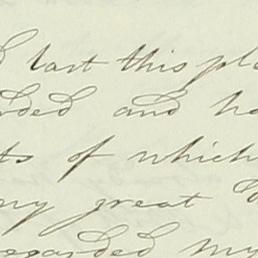 last this pla
ded and ha
ts of which
my great
regarded my